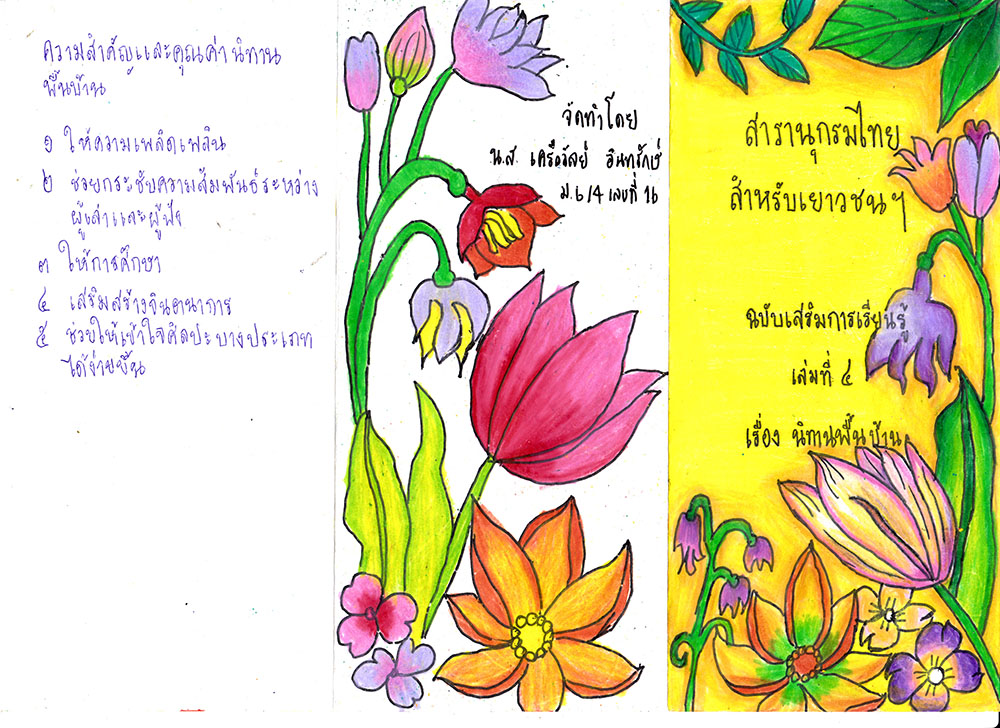 ความสำคัญและคุณค่านิทาน
พื้นบ้าน
๑ ให้ความเพลิดเพลิน
๒ ช่วยกระชับความสัมพันธ์ระหว่าง
ผู้เล่าและผู้ฟัง
๓ ให้การศึกษา
๔ เสริมสร้างจินตนาการ
๕ ช่วยให้เข้าใจศิลปะบางประเภท
ได้ง่ายขึ้น
จัดทำโดย
น.ส. เครือวัลย์ อินทรักษ์
ม.6/4 เลขที่ 26
สารานุกรมไทย
สำหรับเยาวชนฯ
ฉบับเสริมการเรียนรู้
เล่มที่ ๔
เรื่อง นิทานพื้นบ้าน